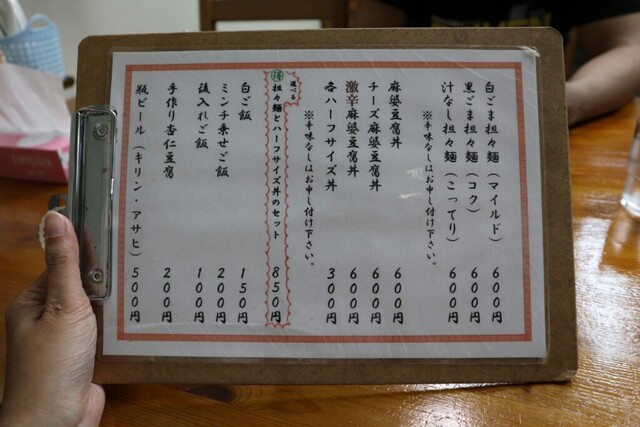 白ごま担々麺（マイルド） ６００円
黒ごま担々麺（コク） ６００円
汁なし担々麺（こってり） ６００円
※辛味なしはお申し付け下さい。
麻婆豆腐丼 ６００円
チーズ麻婆豆腐丼 ６００円
激辛麻婆豆腐丼 ６００円
各ハーフサイズ丼 ３００円
※辛味なしはお申し付け下さい。
選べる
得 担々麺とハーフサイズ丼のセット ８５０円
白ご飯 １５０円
ミンチ乗せご飯 ２００円
後入れご飯 １００円
手作り杏仁豆腐 ２００円
瓶ビール（キリン・アサヒ） ５００円